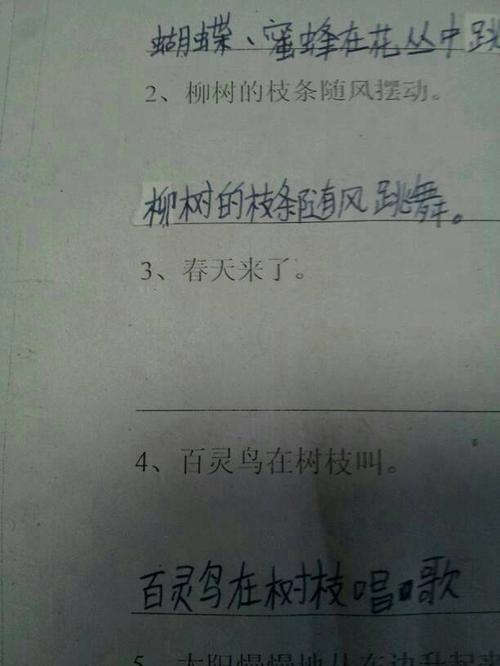 蝴蝶、蜜蜂在花丛中跳
2、柳树的枝条随风摆动。
柳树的枝条随风跳舞。
3、春天来了。
4、百灵鸟在树枝叫。
百灵鸟在树枝唱歌
5、太阳慢慢地从东边升起来